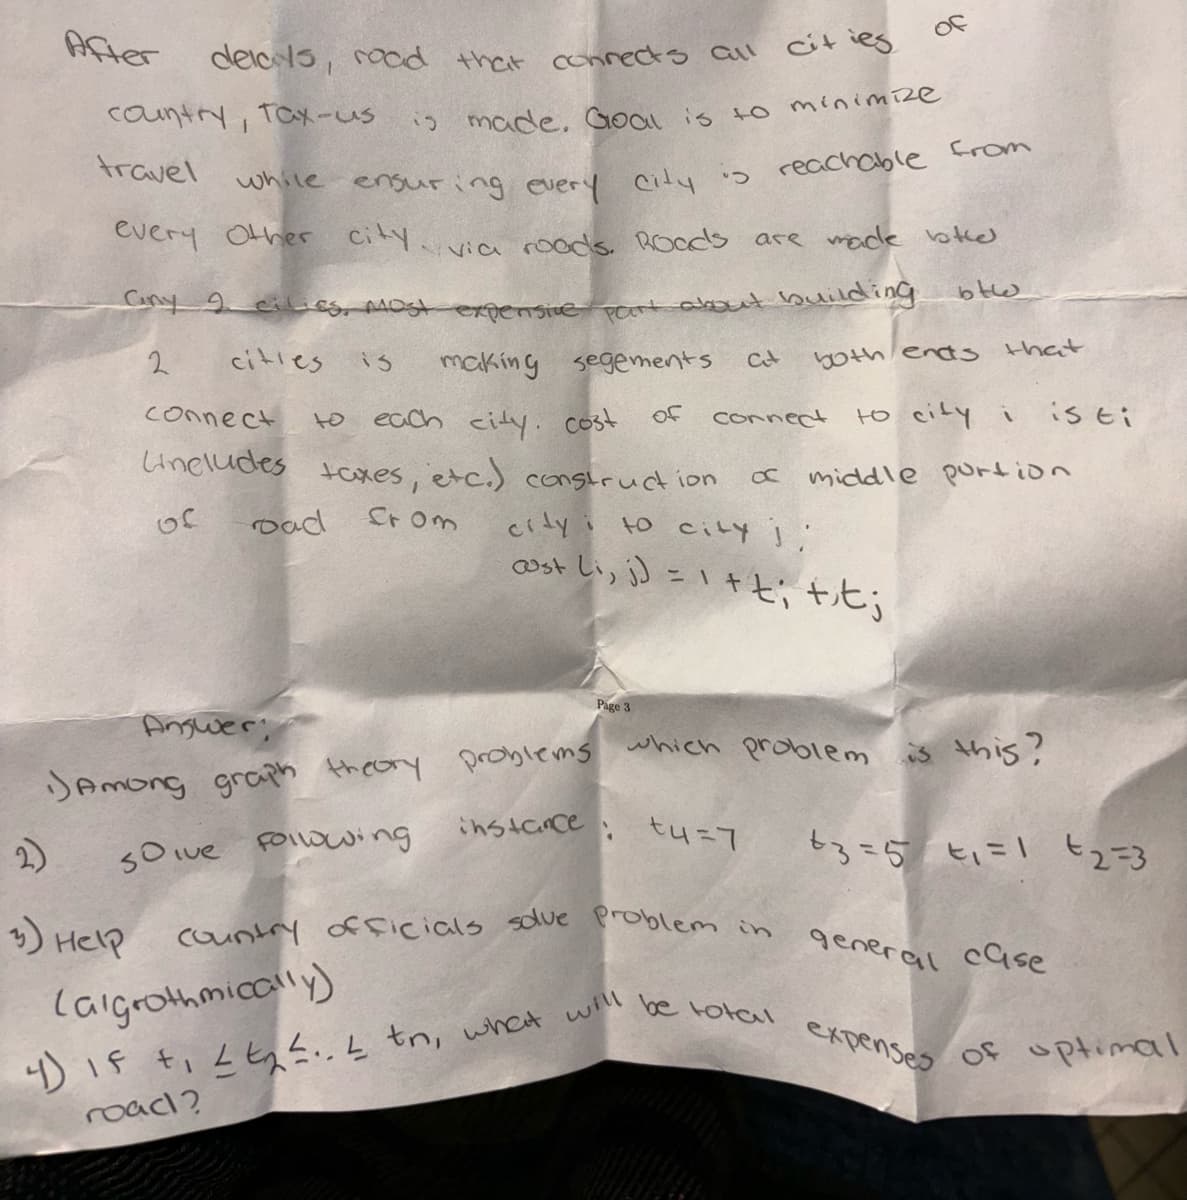 After delays, road that connects all cities of
country, Tax-us is made. Goal is to minimize
travel while ensuring every city is reachable from
every other city via roads. Roads are made btw
any 2 cities. Most expensive part about building btw
2 cities is making segements at both ends that
connect to each city. cost of connect to city i is ti
(includes taxes, etc.) construction of middle portion
of road from city i to city j:
cost (i, j) = 1 + ti + tj
Page 3
Answer:
1) Among graph theory problems which problem is this?
2) solve following instance: t4=7 t3=5 t1=1 t2=3
3) Help country officials solve problem in general case
(algrothmically)
4) If t1 ≤ t2 ≤ .. ≤ tn, what will be total expenses of optimal
road?